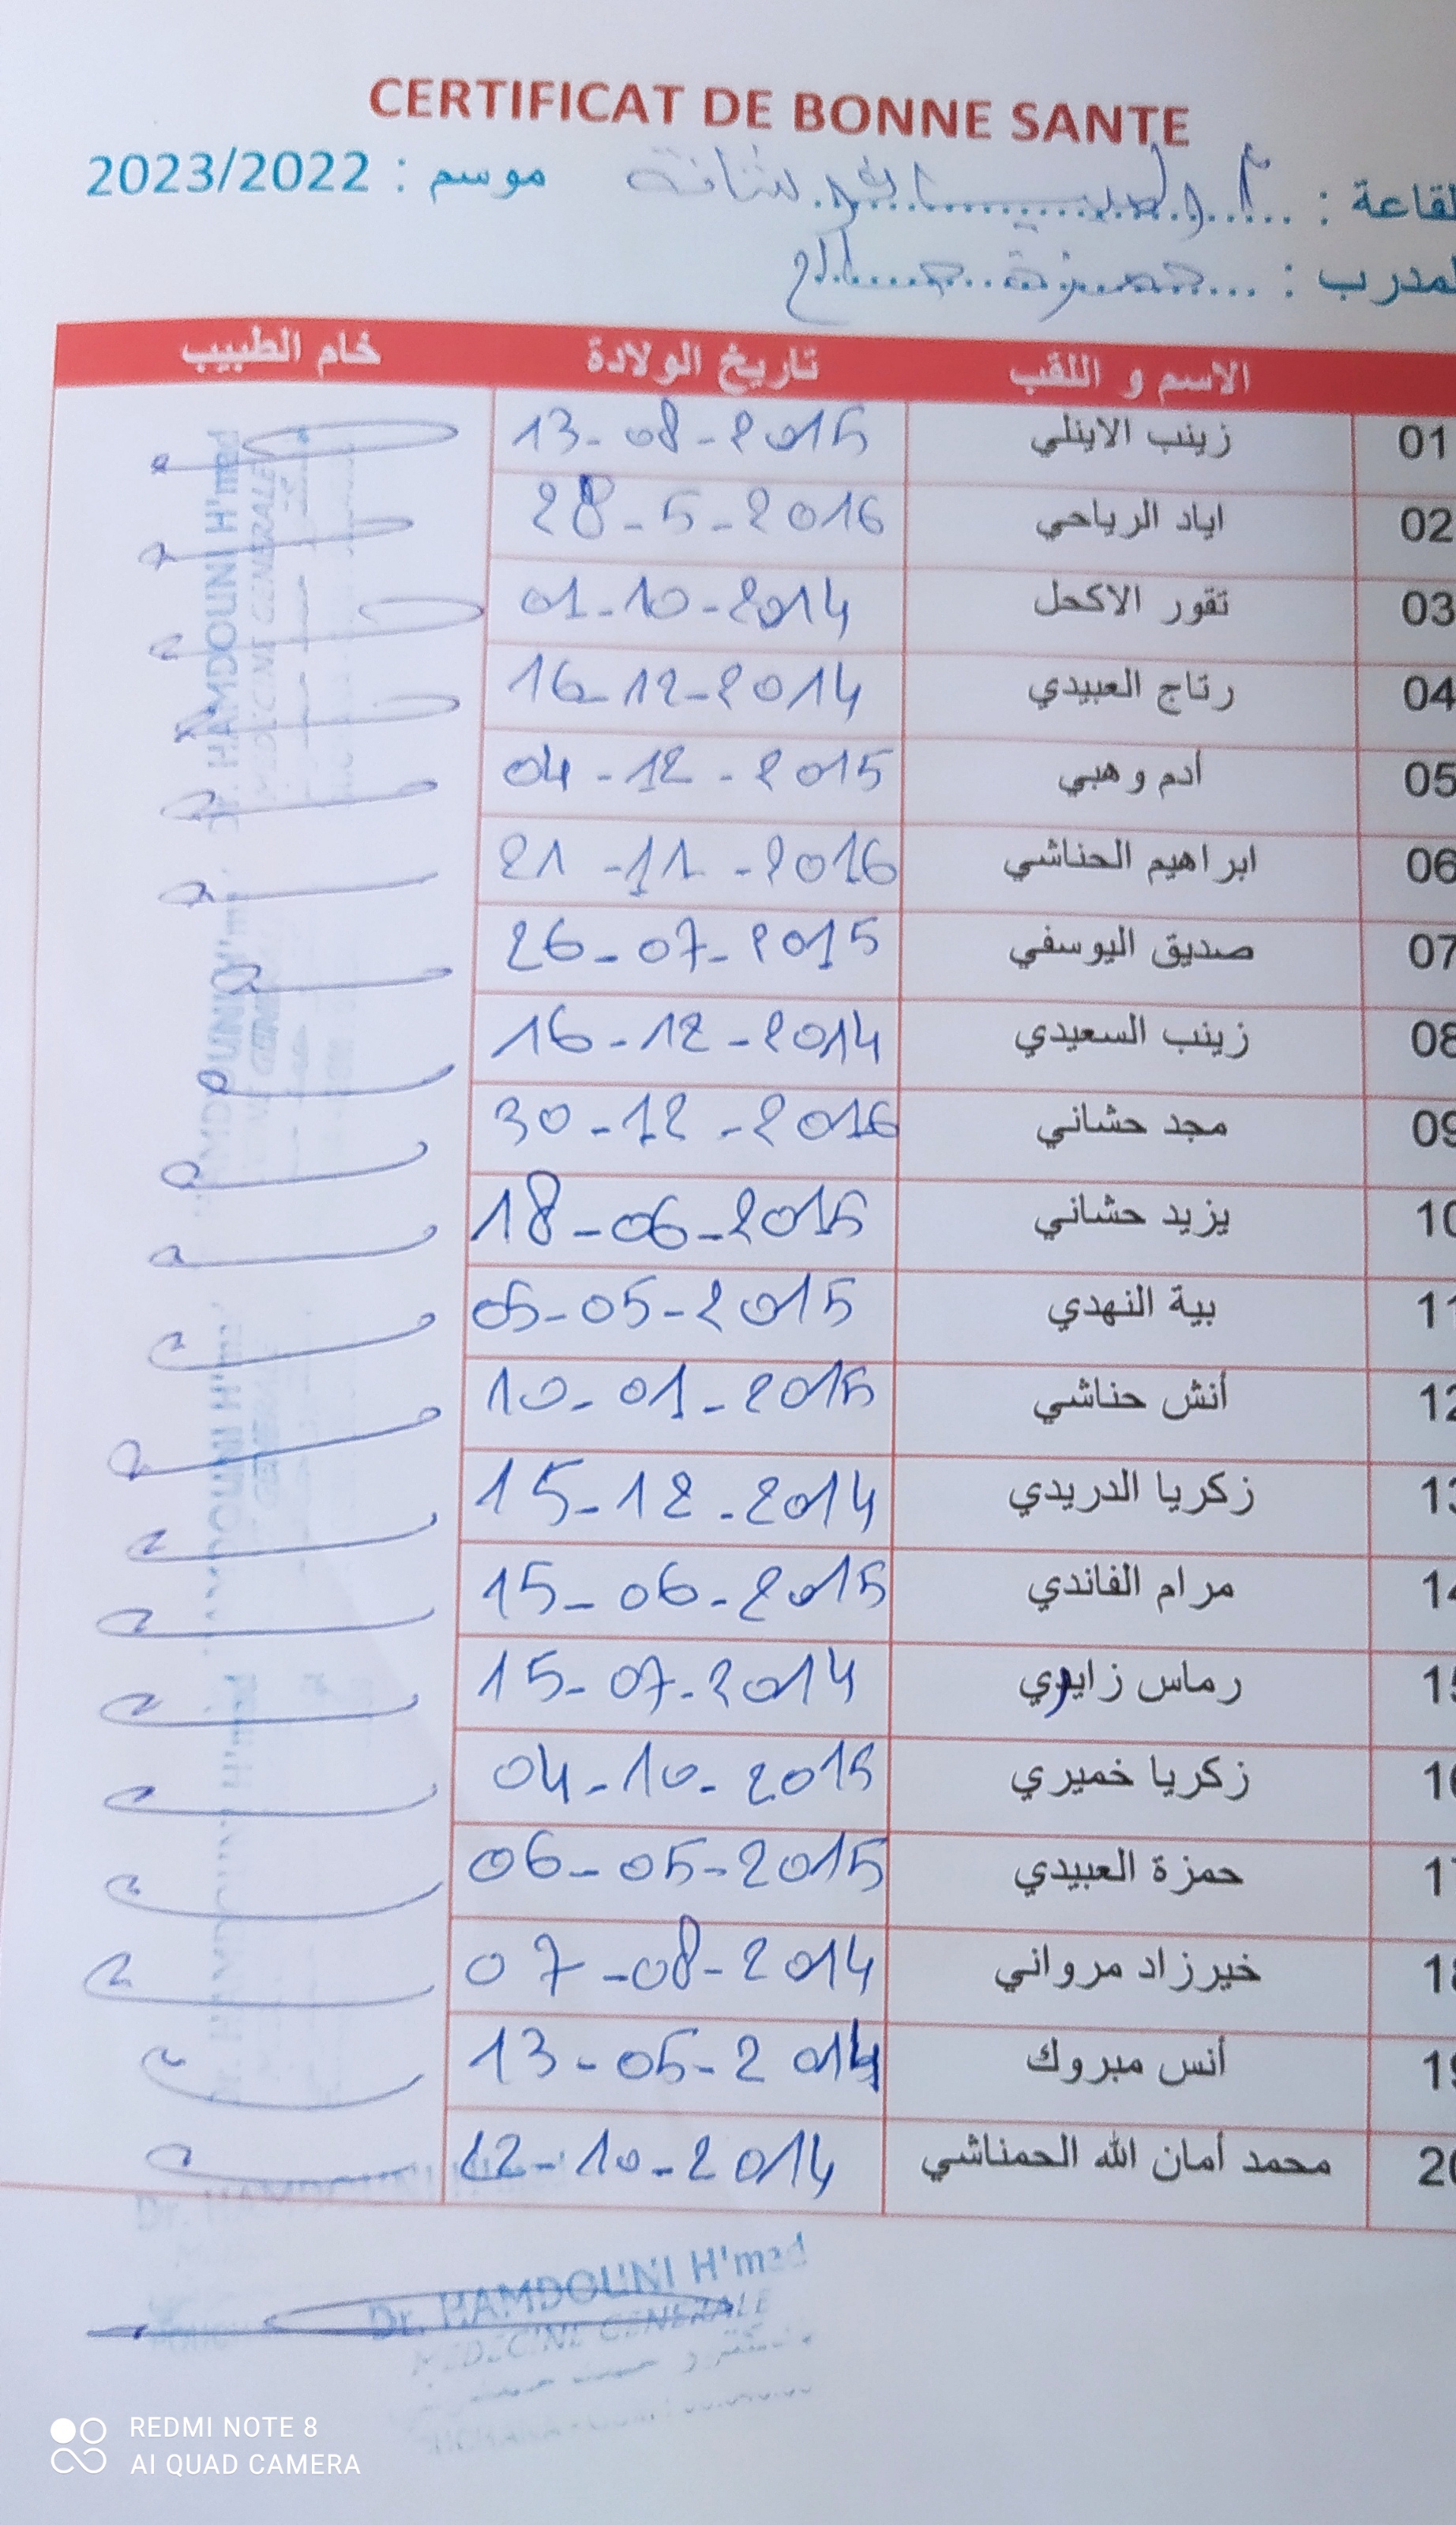 CERTIFICAT DE BONNE SANTE
لقاعة : موسم : 2023/2022
لمدرب : حمزة
الاسم و اللقب تاريخ الولادة خام الطبيب
01 زينب الاينلي 13-08-2015
02 اياد الرياحي 28-5-2016
03 تقور الاكحل 01-10-2014
04 رتاج العبيدي 16-12-2014
05 أدم وهبي 04-12-2015
06 ابراهيم الحناشي 21-11-2016
07 صديق اليوسفي 26-07-2015
08 زينب السعيدي 16-12-2014
09 مجد حشاني 30-12-2016
10 يزيد حشاني 18-06-2015
11 بية النهدي 05-05-2015
12 أنش حناشي 10-01-2015
13 زكريا الدريدي 15-12-2014
14 مرام الفاندي 15-06-2015
15 رماس زايدي 15-07-2014
16 زكريا خميري 04-10-2015
17 حمزة العبيدي 06-05-2015
18 خيرزاد مرواني 07-08-2014
19 أنس مبروك 13-05-2014
20 محمد أمان الله الحمناشي 12-10-2014
Dr. HAMDOUNI H'med
MEDECINE GENERALE
REDMI NOTE 8
AI QUAD CAMERA